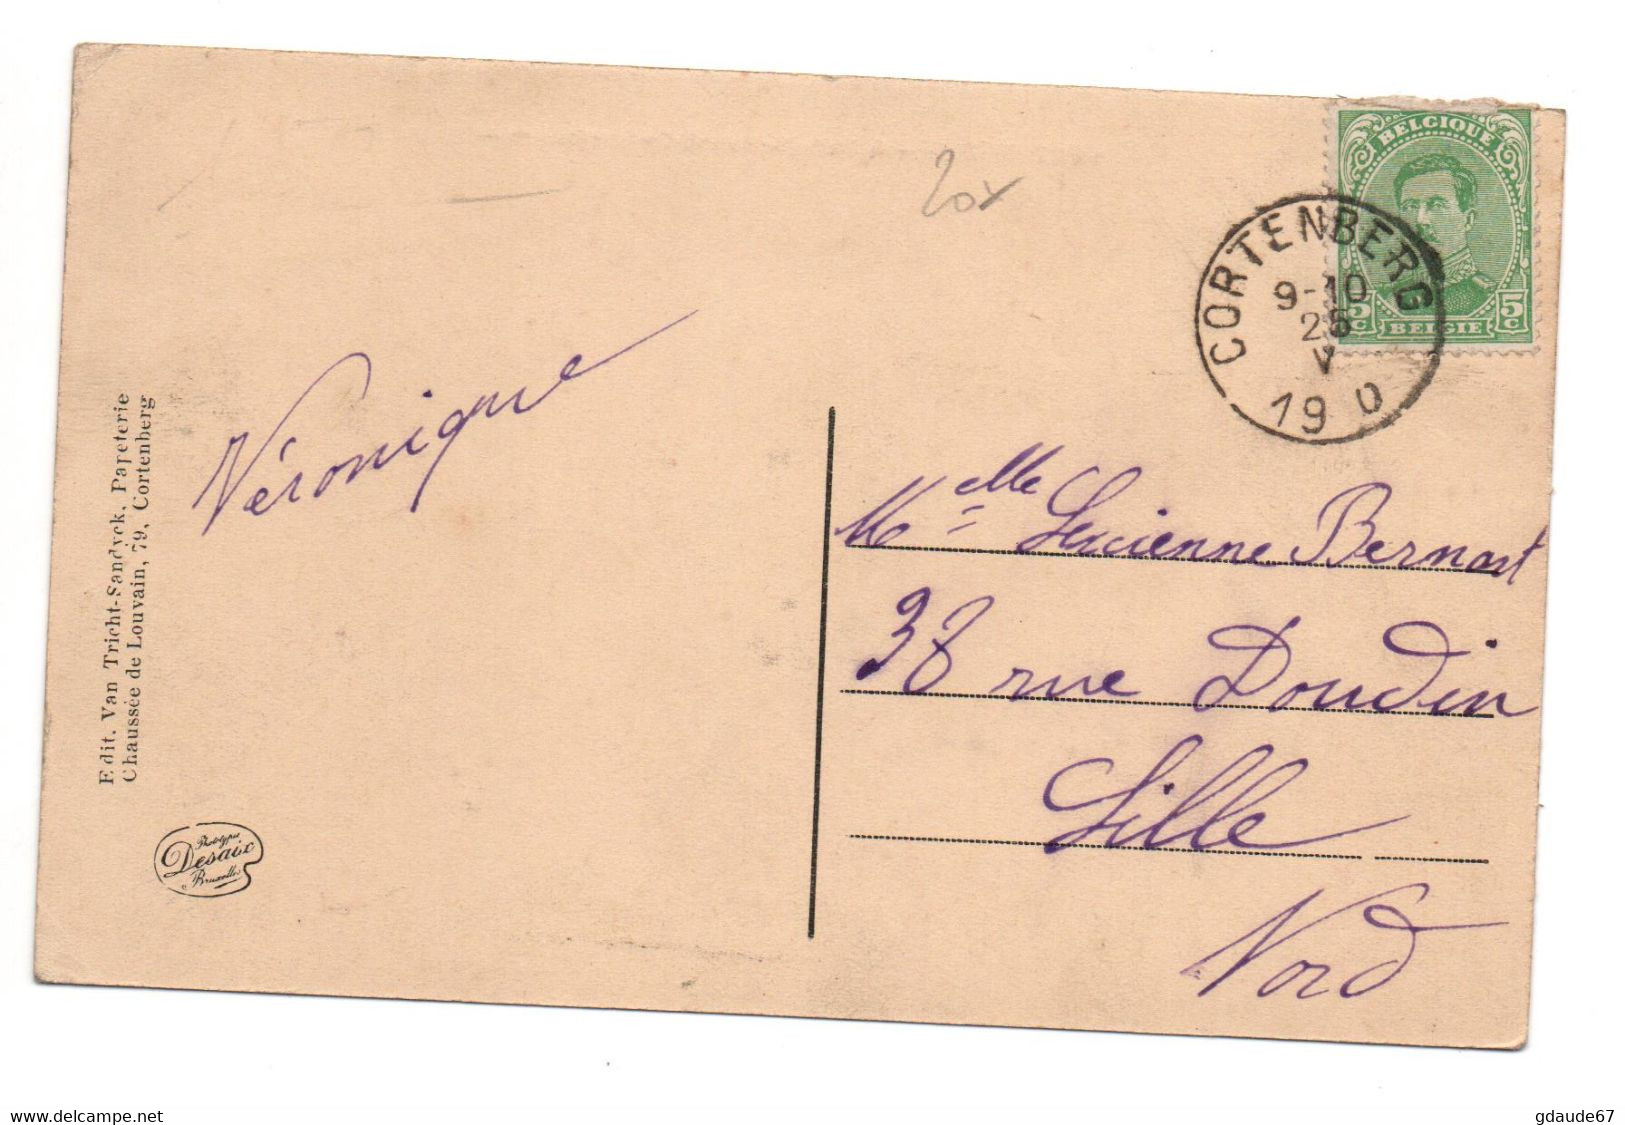 20x
BELGIQUE
5c BELGIE 5c
CORTENBERG
9-10
25
V
19 0
Edit. Van Tricht-Sandyck, Papeterie
Chaussée de Louvain, 79, Cortenberg
Véronique
Melle Lucienne Bernast
38 rue Doudin
Lille
Nord
Phototypie
Desaix
Bruxelles
www.delcampe.net
gdaude67